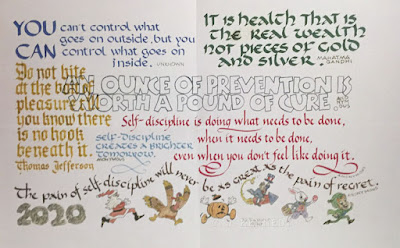 YOU can't control what
goes on outside, but you
CAN control what goes on
inside. UNKNOWN
IT IS HEALTH THAT IS
THE REAL WEALTH
NOT PIECES OF GOLD
AND SILVER. MAHATMA
GANDHI
Do not bite
at the bait of
pleasure till
you know there
is no hook
beneath it.
Thomas Jefferson
AN OUNCE OF PREVENTION IS
WORTH A POUND OF CURE.
Self-discipline is doing what needs to be done,
when it needs to be done,
even when you don't feel like doing it.
SELF-DISCIPLINE
CREATES A BRIGHTER
TOMORROW.
The pain of self-discipline will never be as great as the pain of regret.
2020